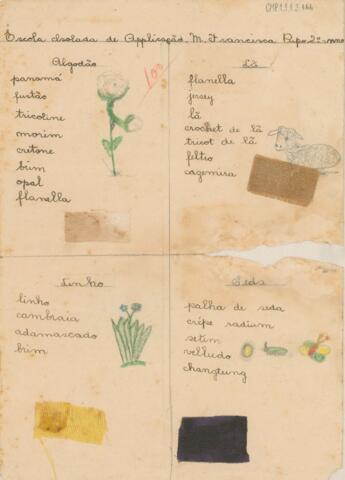 Escola Isolada de Applicação. M. Francisca 2º anno
100
Algodão
panamá
fustão
tricoline
morim
cretone
brim
opal
flanella
Lã
flanella
jersey
lã
crochet de lã
tricot de lã
feltro
cazemira
Linho
linho
cambraia
adamascado
brim
Seda
palha de seda
crépe radium
setim
velludo
changtung